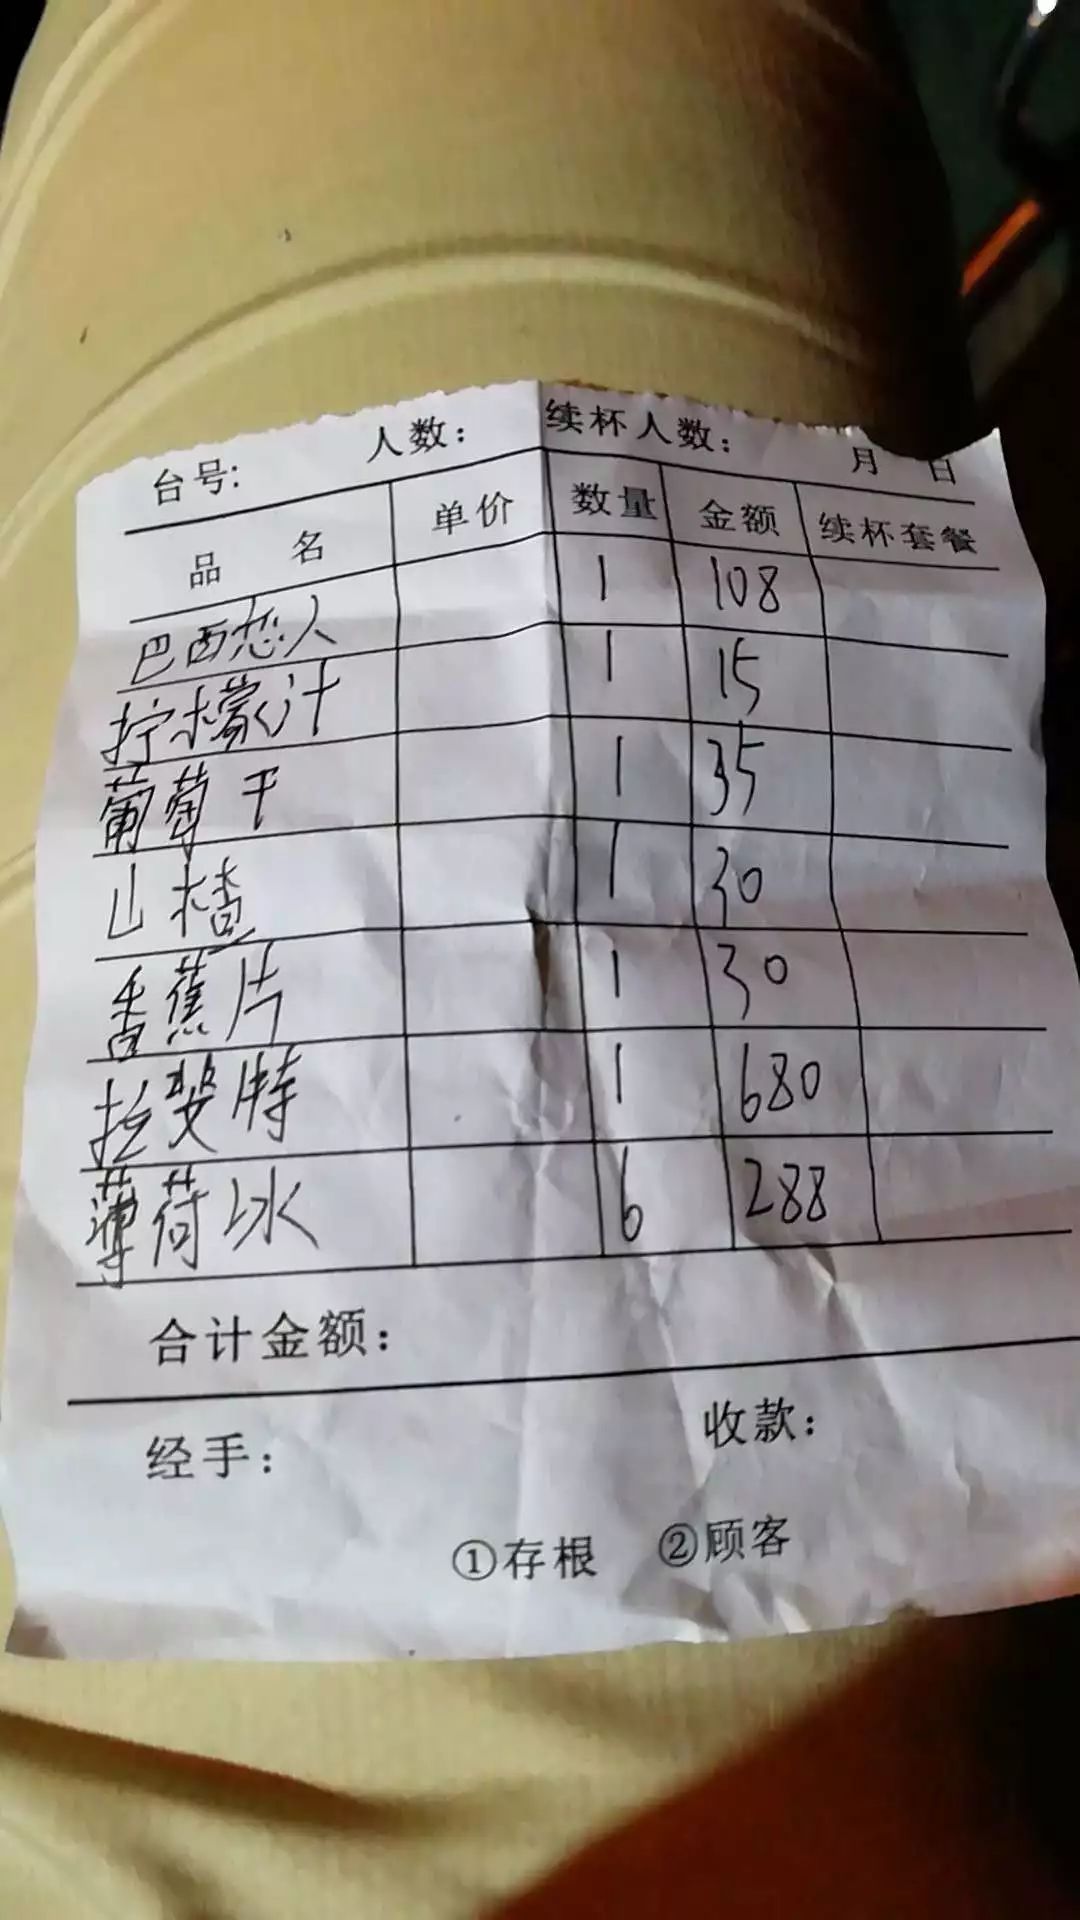 台号: 人数: 续杯人数: 月 日
品名 单价 数量 金额 续杯套餐
巴西恋人 1 108
柠檬汁 1 15
葡萄干 1 35
山楂 1 30
香蕉片 1 30
拉斐特 1 680
薄荷冰 6 288
合计金额:
经手: 收款:
①存根 ②顾客